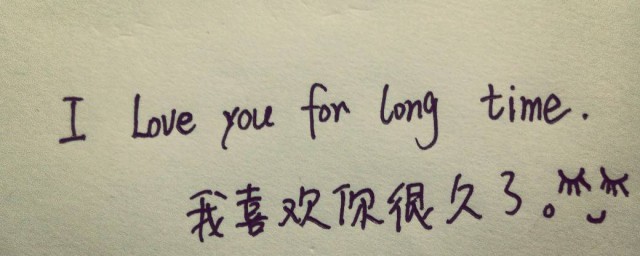 I Love you for long time.
我喜欢你很久了。